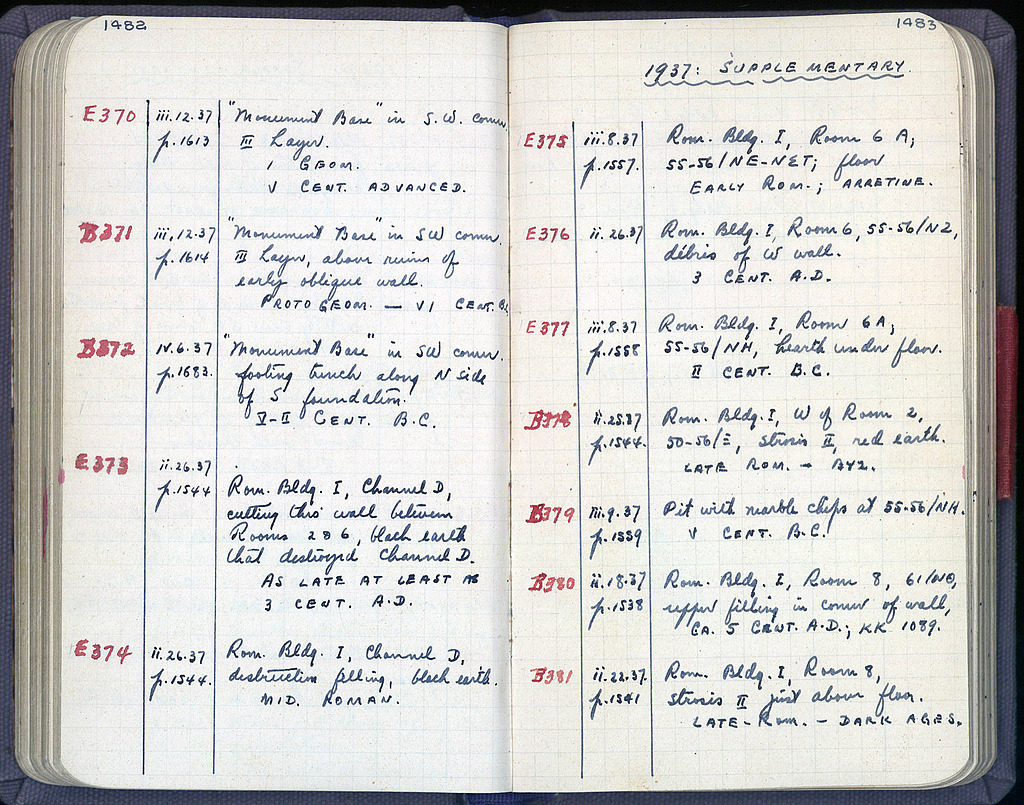 1482
E370 iii.12.37 "Monument Base" in S.W. corner,
p.1613 III Layer.
1 GEOM.
V CENT. ADVANCED.
B371 iii,12.37 "Monument Base" in SW corner.
p.1614 III Layer, above ruins of
early oblique wall.
PROTOGEOM. — VI CENT. B.C.
B372 iv.6.37 "Monument Base" in SW corner.
p.1683. footing trench along N side
of S foundation.
V-II CENT. B.C.
E373 ii.26.37
p.1544 Rom. Bldg. I, Channel D,
cutting this wall between
Rooms 2 & 6, black earth
that destroyed Channel D.
AS LATE AT LEAST AS
3 CENT. A.D.
E374 ii.26.37 Rom. Bldg. I, Channel D,
p.1544. destruction filling, black earth.
MID. ROMAN.
1483
1937: SUPPLEMENTARY.
E375 iii.8.37 Rom. Bldg. I, Room 6 A;
p.1557. 55-56/NE-NΣT; floor
EARLY ROM.; ARRETINE.
E376 ii.26.37 Rom. Bldg. I, Room 6, 55-56/NZ,
débris of W wall.
3 CENT. A.D.
E377 iii.8.37 Rom. Bldg. I, Room 6A;
p.1558 55-56/NH, hearth under floor.
II CENT. B.C.
B378 ii.25.37 Rom. Bldg. I, W of Room 2,
p.1544. 50-56/Ξ, strosis II, red earth.
LATE ROM. — BYZ.
B379 iii.9.37 Pit with marble chips at 55-56/NH.
p.1559 V CENT. B.C.
B380 ii.18.37 Rom. Bldg. I, Room 8, 61/NΘ,
p.1538 upper filling in corner of wall,
CA. 5 CENT. A.D.; KK 1089.
B381 ii.22.37. Rom. Bldg. I, Room 8,
p.1541 strosis II just above floor.
LATE-Rom. — DARK AGES.